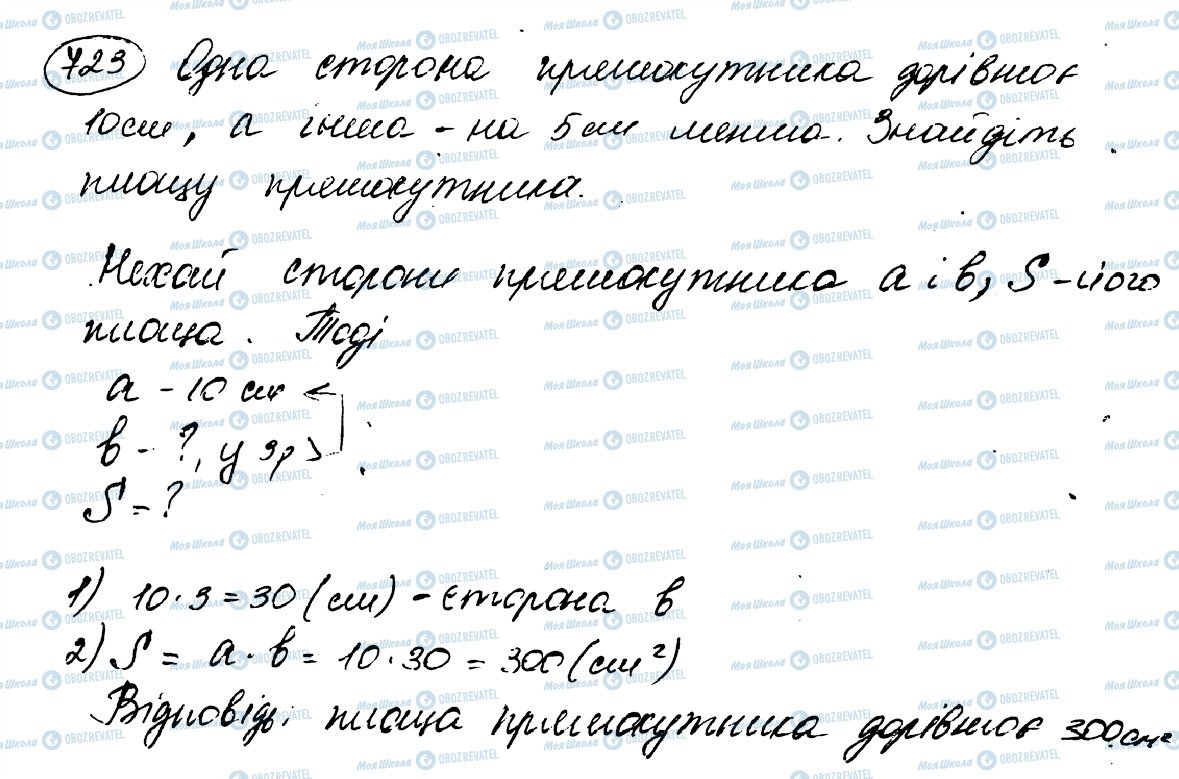 723 Одна сторона прямокутника дорівнює
10см, а інша - на 5см менша. Знайдіть
площу прямокутника.
Нехай сторони прямокутника а і в, S - його
площа. Тоді
а - 10 см
в - ?, у 3р >
S = ?
1) 10 · 3 = 30 (см) - сторона в
2) S = а · в = 10 · 30 = 300 (см²)
Відповідь: площа прямокутника дорівнює 300см²
Моя Школа OBOZREVATEL